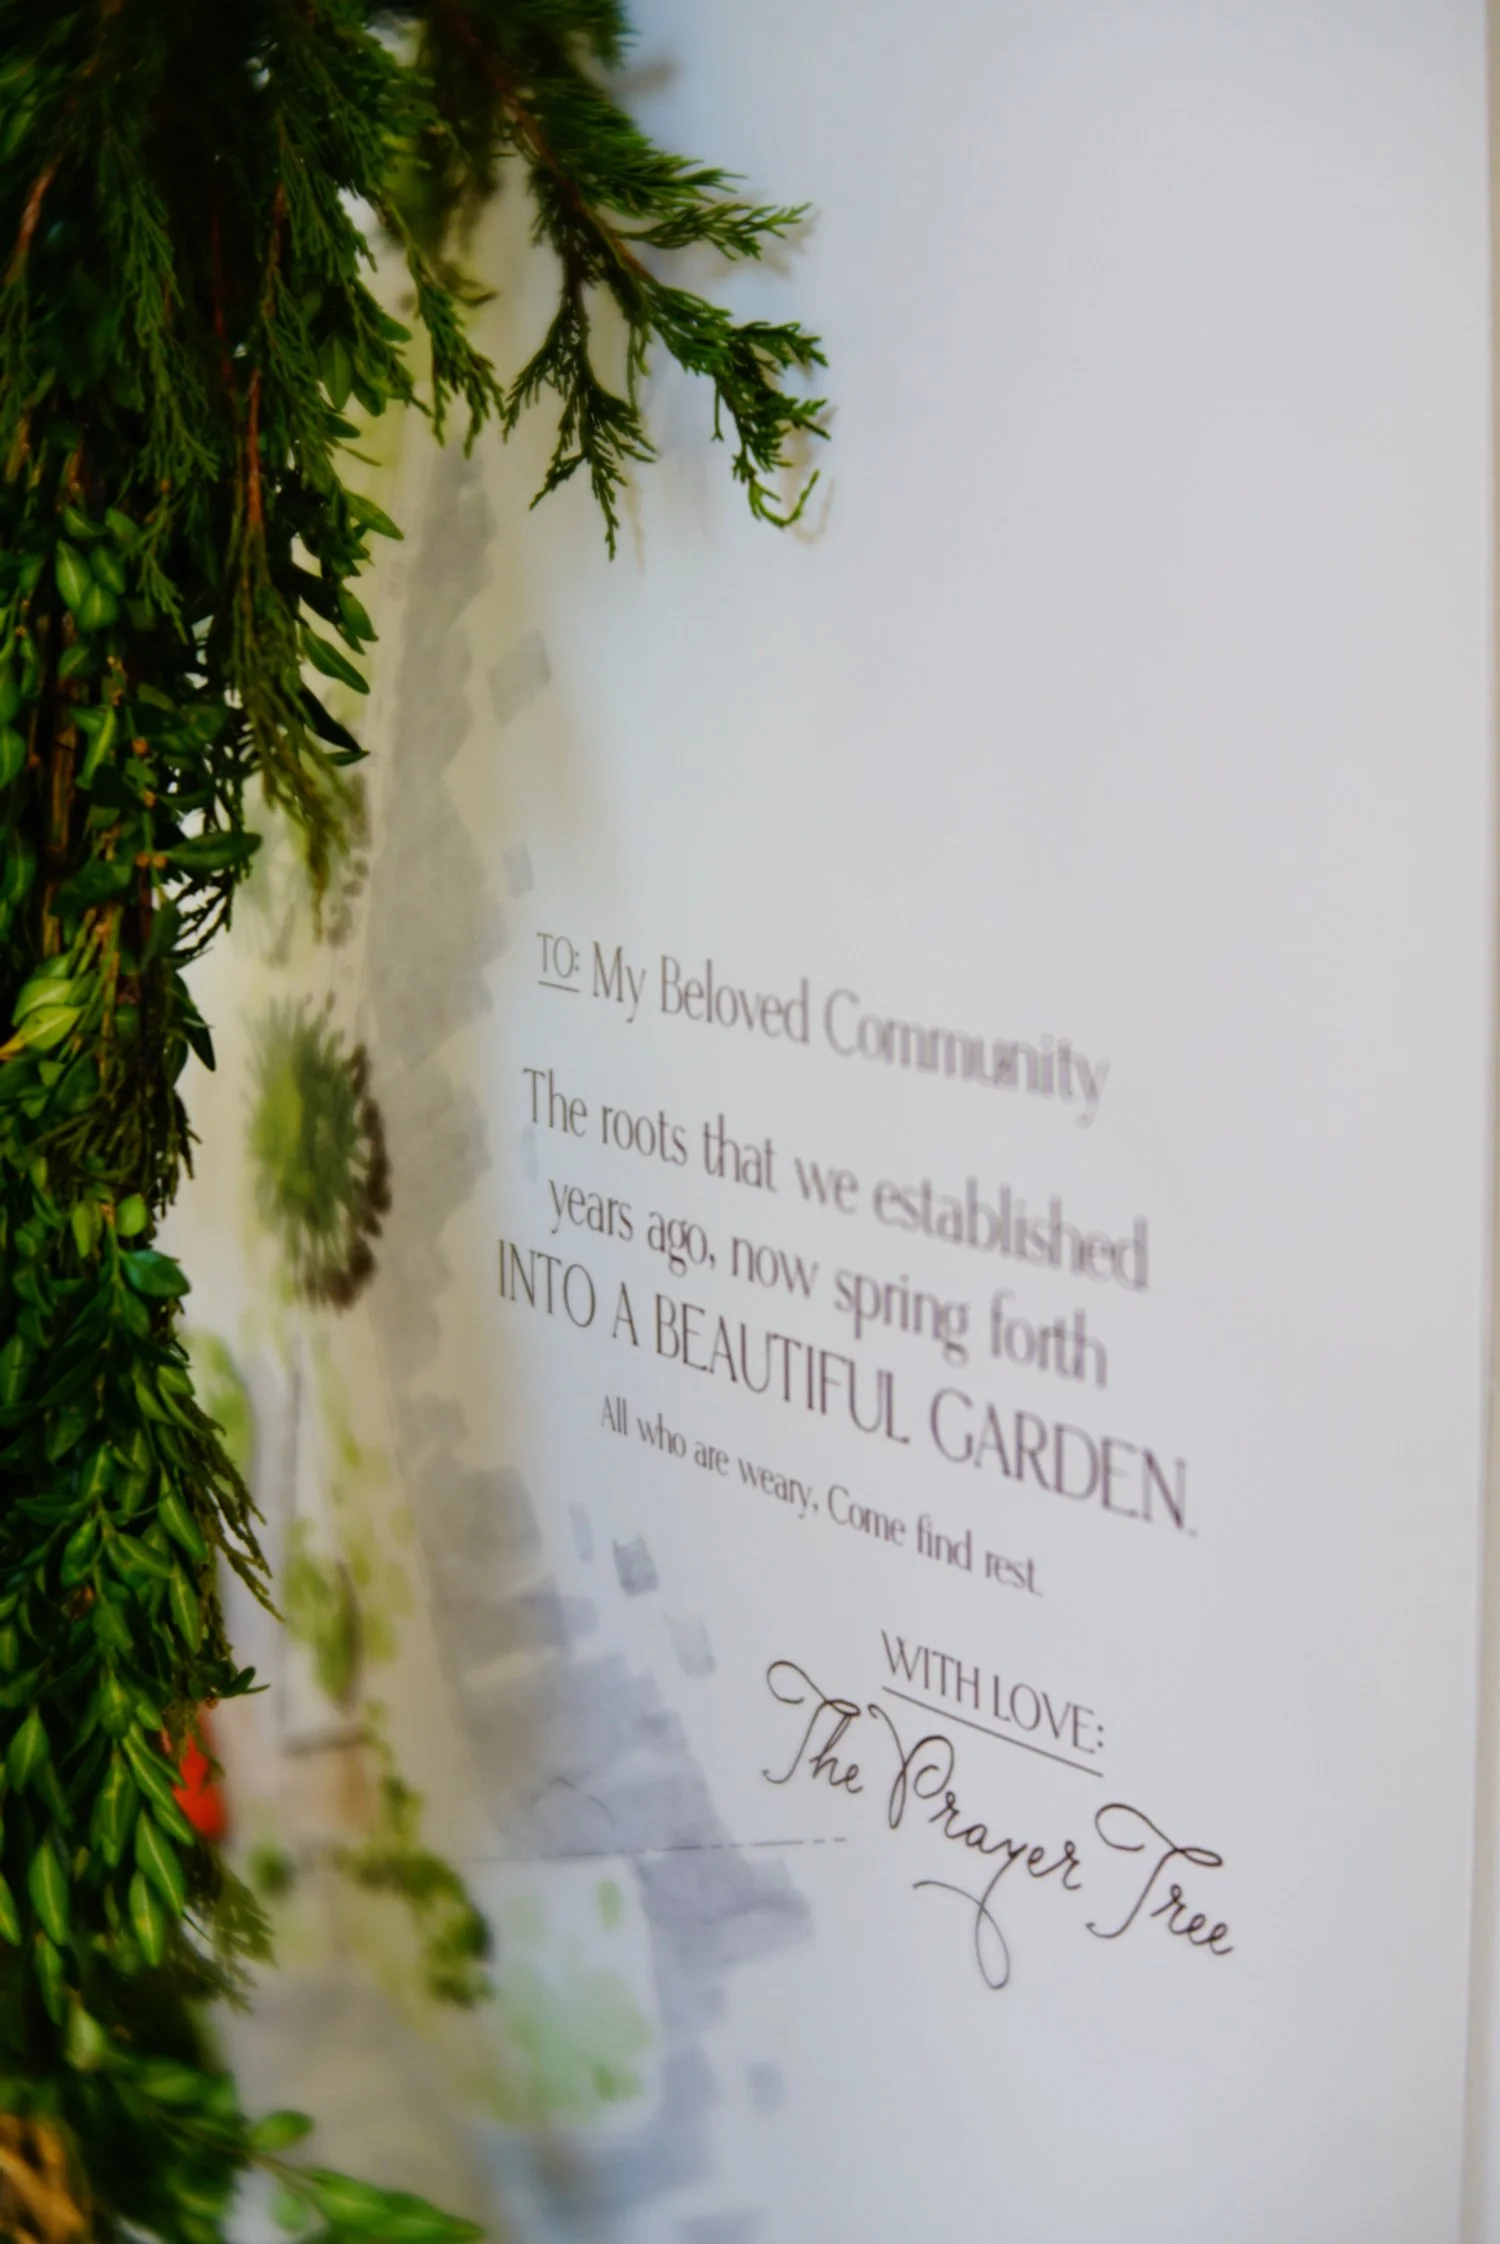 TO: My Beloved Community
The roots that we established
years ago, now spring forth
INTO A BEAUTIFUL GARDEN.
All who are weary, Come find rest.
WITH LOVE:
The Prayer Tree